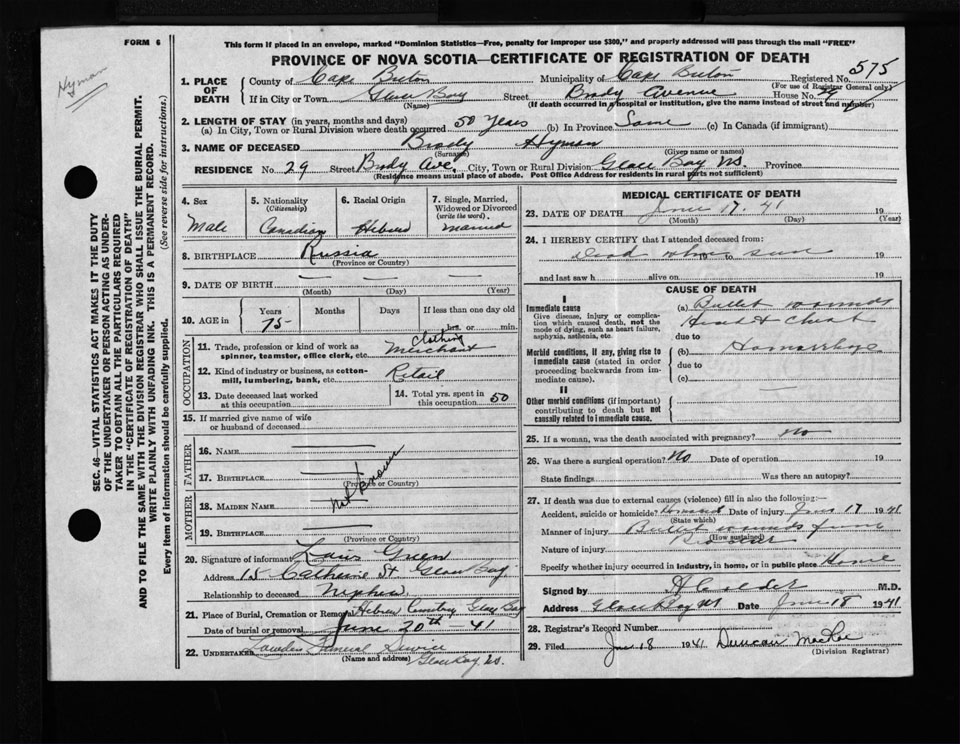 FORM 6
This form if placed in an envelope, marked "Dominion Statistics—Free, penalty for improper use $300," and properly addressed will pass through the mail "FREE"
PROVINCE OF NOVA SCOTIA—CERTIFICATE OF REGISTRATION OF DEATH
Hyman
575
1. PLACE OF DEATH County of Cape Breton Municipality of Cape Breton Registered No.
(For use of Registrar General only)
If in City or Town Glace Bay Street Brody Avenue House No.
(Name) (If death occurred in a hospital or institution, give the name instead of street and number)
2. LENGTH OF STAY (in years, months and days)
(a) In City, Town or Rural Division where death occurred 50 Years (b) In Province Same (c) In Canada (if immigrant)
3. NAME OF DECEASED Brody Hyman
(Surname) (Given name or names)
RESIDENCE No. 29 Street Brody Ave. City, Town or Rural Division Glace Bay NS. Province
(Residence means usual place of abode. Post Office Address for residents in rural parts not sufficient)
4. Sex
Male
5. Nationality
(Citizenship)
Canadian
6. Racial Origin
Hebrew
7. Single, Married, Widowed or Divorced
(write the word)
Married
8. BIRTHPLACE Russia
(Province or Country)
9. DATE OF BIRTH
(Month) (Day) (Year)
10. AGE in Years Months Days If less than one day old
75 hrs. or min.
OCCUPATION
11. Trade, profession or kind of work as Clothing
spinner, teamster, office clerk, etc. Merchant
12. Kind of industry or business, as cotton-
mill, lumbering, bank, etc. Retail
13. Date deceased last worked
at this occupation
14. Total yrs. spent in
this occupation 50
15. If married give name of wife
or husband of deceased
FATHER
16. NAME
17. BIRTHPLACE
(Province or Country)
Not Known
MOTHER
18. MAIDEN NAME
19. BIRTHPLACE
(Province or Country)
20. Signature of informant
Address 15 Catherine St Glace Bay
Relationship to deceased Nephew
21. Place of Burial, Cremation or Removal Hebrew Cemetery Glace Bay
Date of burial or removal June 20th - 41
22. UNDERTAKER Funeral Service
(Name and address) Glace Bay NS.
MEDICAL CERTIFICATE OF DEATH
23. DATE OF DEATH June 17. 41 19
(Month) (Day) (Year)
24. I HEREBY CERTIFY that I attended deceased from:
Dead when seen to 19
and last saw h alive on 19
CAUSE OF DEATH
I
Immediate cause
Give disease, injury or complica-
tion which caused death, not the
mode of dying, such as heart failure,
asphyxia, asthenia, etc.
(a) Bullet wounds
Head & Chest
due to
Morbid conditions, if any, giving rise to
immediate cause (stated in order
proceeding backwards from im-
mediate cause).
(b) Hemorrhage
due to
(c)
II
Other morbid conditions (if important)
contributing to death but not
causally related to immediate cause.
25. If a woman, was the death associated with pregnancy? No
26. Was there a surgical operation? No Date of operation 19
State findings Was there an autopsy?
27. If death was due to external causes (violence) fill in also the following:—
Accident, suicide or homicide? Homicide Date of injury June 17 1941
(State which)
Manner of injury Bullet wounds from
(How sustained)
Nature of injury
Specify whether injury occurred in industry, in home, or in public place Home
Signed by M.D.
Address Glace Bay NS Date June 18 1941
28. Registrar's Record Number
29. Filed June 18 1941 Duncan MacRae
(Division Registrar)
SEC. 46—VITAL STATISTICS ACT MAKES IT THE DUTY
OF THE UNDERTAKER OR PERSON ACTING AS UNDER-
TAKER TO OBTAIN ALL THE PARTICULARS REQUIRED
IN THE "CERTIFICATE OF REGISTRATION OF DEATH"
AND TO FILE THE SAME WITH THE DIVISION REGISTRAR WHO SHALL ISSUE THE BURIAL PERMIT.
WRITE PLAINLY WITH UNFADING INK. THIS IS A PERMANENT RECORD.
Every item of information should be carefully supplied. (See reverse side for instructions.)